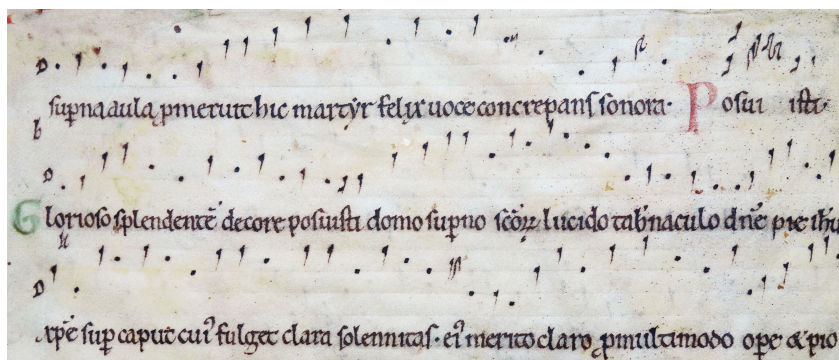 supna aula pmeruit hic martyr felix uoce concrepans sonora. Posui isti.
Glorioso splendentē decore posuisti domo supno scōꝝ lucido tab'naculo dn̄e pie ihu
xp̄e sup caput cui' fulget clara solennitas. ei' merito claro pmultimodo ope & pia